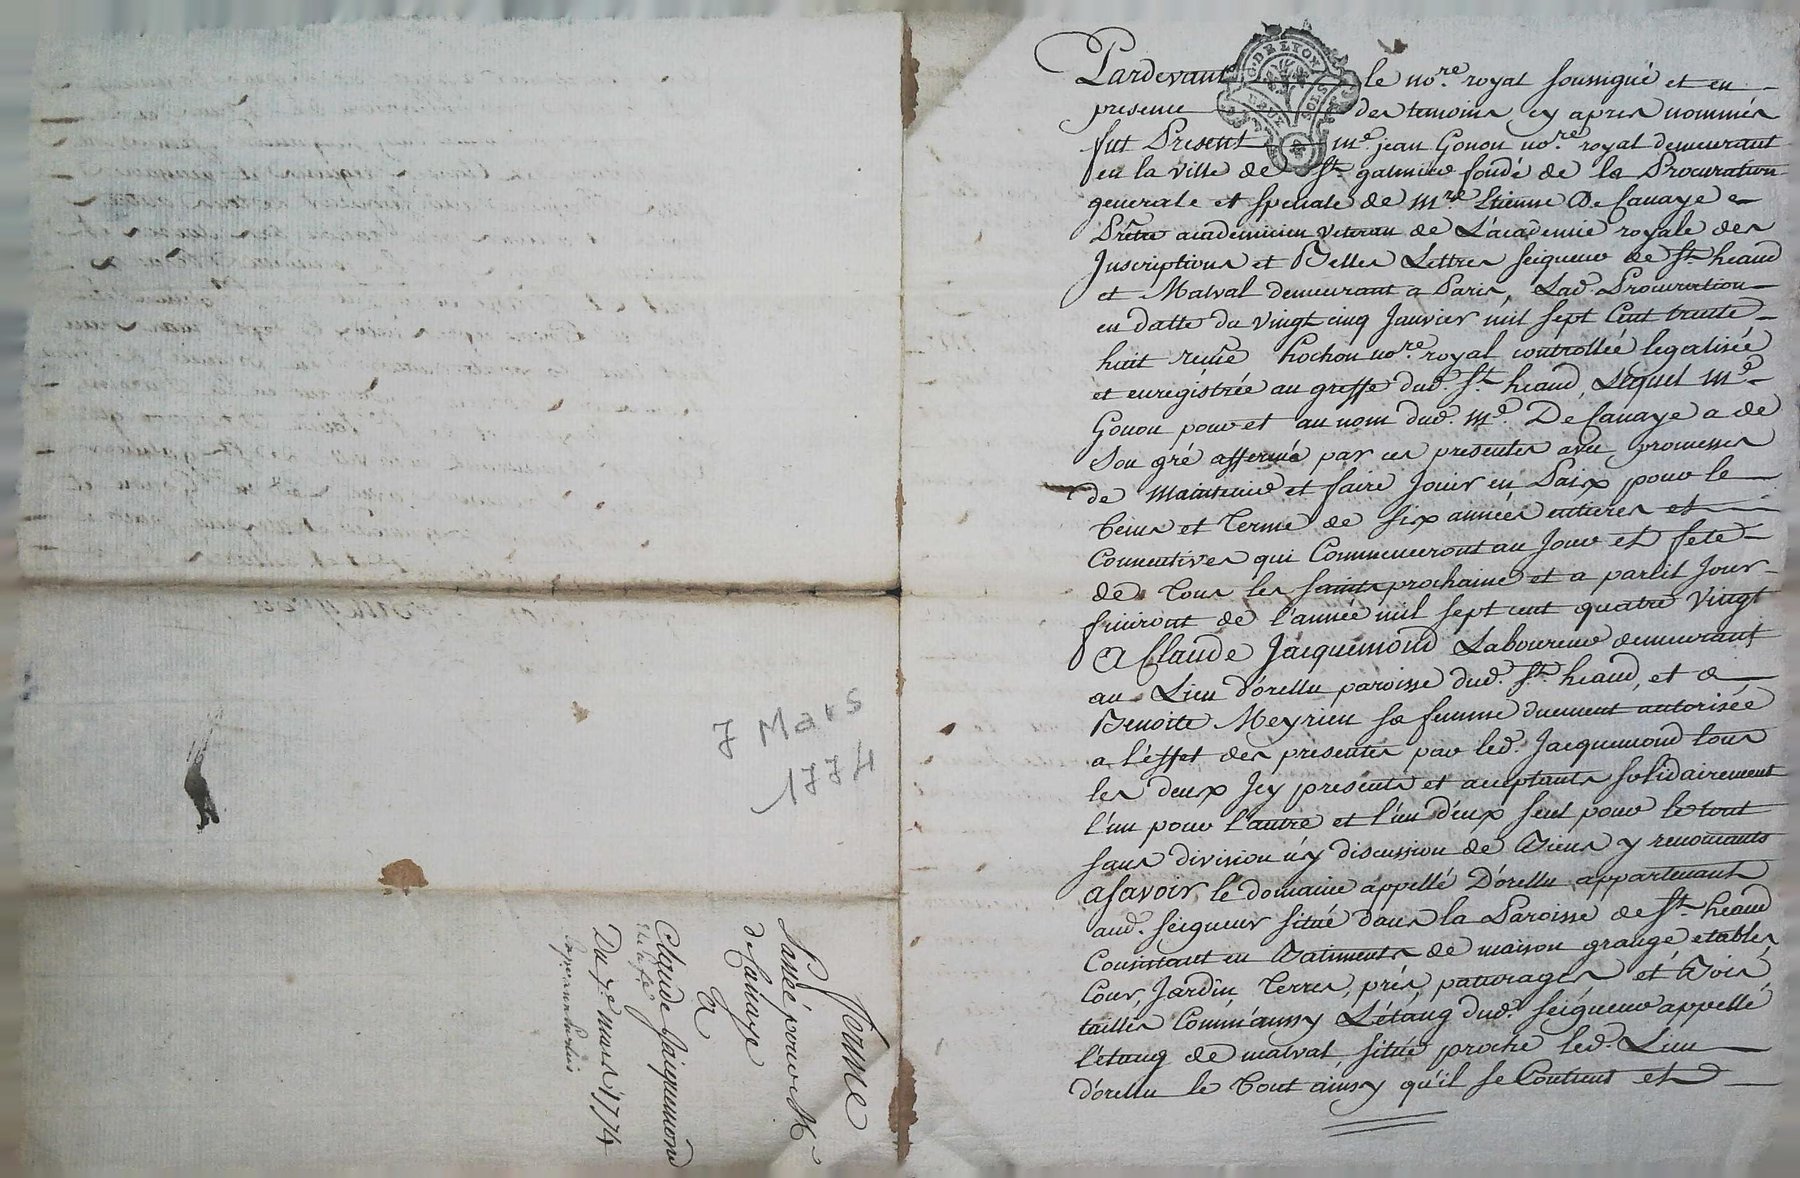 7 Mars
1774
ferme
Passée pour Mr
de Canaye
A
Claude Jacquemond
et sa fe
Du 7e mars 1774
G. DE LYON
DEUX SOLS
Pardevant le nore. royal soussigné et en
presence des temoins cy apres nommés
fut Present me. jean Gonon nore. royal demeurant
en la ville de St. galmier fondé de la Procuration
generale et speciale de mre. Etienne De Canaye
Prêtre academicien veteran de L'academie royale des
Inscriptions et Belles Léttres seigneur de St. heand
et Malval demeurant a Paris, Lad. Procuration
en datte du vingt cinq Janvier mil sept Cent trante
huit reçüe hochon nore. royal controllée legalisée
et enregistrée au greffe dud. St. heand, Lequel me.
Gonon pour et au nom dud. me. De Canaye a de
Son gré affermé par ces presentes avec promesses
de maintenir et faire Jouir en Paix pour le
tems et terme de six années entieres et
Consecutives qui Commenceront au Jour et fete
de tous les saints prochaine et a pareil Jour
finiront de l'année mil sept cent quatre vingt
A Claude Jacquemond Laboureur demeurant
au Lieu d'orellu paroisse dud. St. heand, et a
Benoite Meyrieu sa femme duement autorisée
a l'effet des presentes par led. Jacquemond tous
les deux Icy presents et acceptants solidairement
l'un pour l'autre et l'un d'eux seul pour le tout
sans division n'y discussion de Biens y renonçants
asavoir, le domaine appellé D'orellu appartenant
aud. seigneur situé dans la Paroisse de St. heand
Consistant en Batiments de maison grange etables,
Cour, Jardin, Terres, prés, paturages et Bois
taillés Comm'aussy L'étang dud. seigneur appellé
l'étang de malval situé proche led. Lieu
d'orellu le tout ainsy qu'il se Contient et